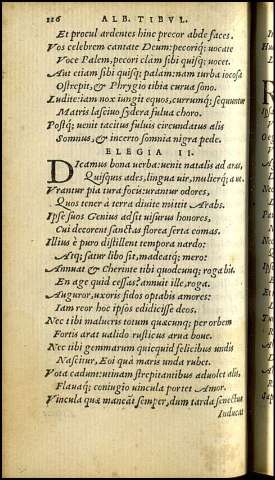 116 ALB. TIBVL.
Et procul ardentes hinc precor abde faces.
Vos celebrem cantate Deum: pecoriq; uocate
Voce Palem, pecori clam sibi quisq; uocet.
Aut etiam sibi quisq; palam: nam turba iocosa
Obstrepit, & Phrygio tibia curua sono.
Ludite: iam nox iungit equos, currumq; sequuntur
Matris lasciuo sydera fulua choro.
Postq; uenit tacitus fuluis circundatus alis
Somnus, & incerto somnia nigra pede.
ELEGIA II.
Dicamus bona uerba: uenit natalis ad aras,
Quisquis ades, lingua uir, mulierq; aue.
Vrantur pia tura focis: urantur odores,
Quos tener à terra diuite mittit Arabs.
Ipse suos Genius adsit uisurus honores,
Cui decorent sanctas florea serta comas.
Illius è puro distillent tempora nardo:
Atq; satur libo sit, madeatq; mero:
Annuat & Cherinte tibi quodcunq; rogabis.
En age quid cessas? annuit ille, roga.
Auguror, uxoris fidos optabis amores:
Iam reor hoc ipsos edidicisse deos.
Nec tibi malueris totum quæcunq; per orbem
Fortis arat ualido rusticus arua boue.
Nec tibi gemmarum quicquid felicibus undis
Nascitur, Eoi quà maris unda rubet.
Vota cadunt: utinam strepitantibus aduolet alis,
Flauaq; coniugio uincula portet Amor.
Vincula quæ maneāt semper, dum tarda senectus
Inducat